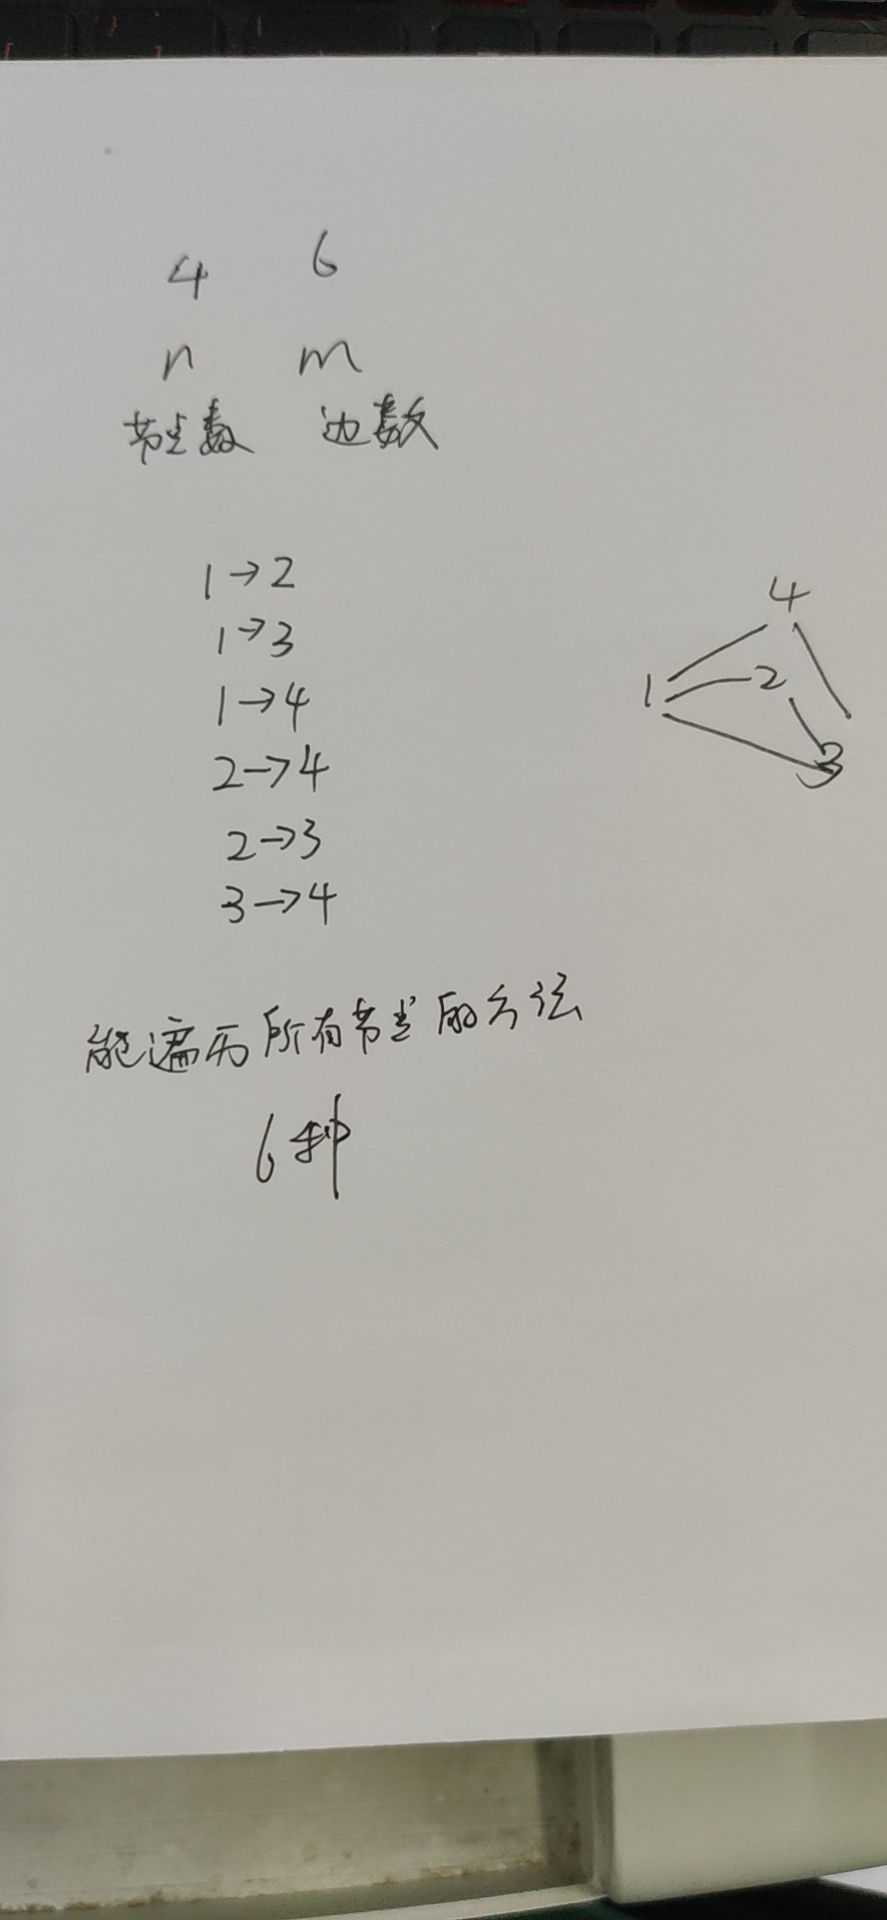 4 6
n m
节点数 边数
1→2
1→3
1→4
2→4
2→3
3→4
4
1 2
3
能遍历所有节点的方法
6种